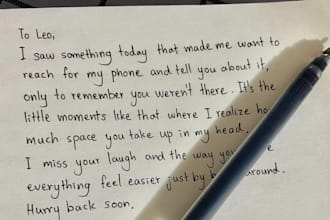 To Leo,
I saw something today that made me want to
reach for my phone and tell you about it,
only to remember you weren't there. It's the
little moments like that where I realize
much space you take up in my head.
I miss your laugh and the way
everything feel easier just by around.
Hurry back soon.